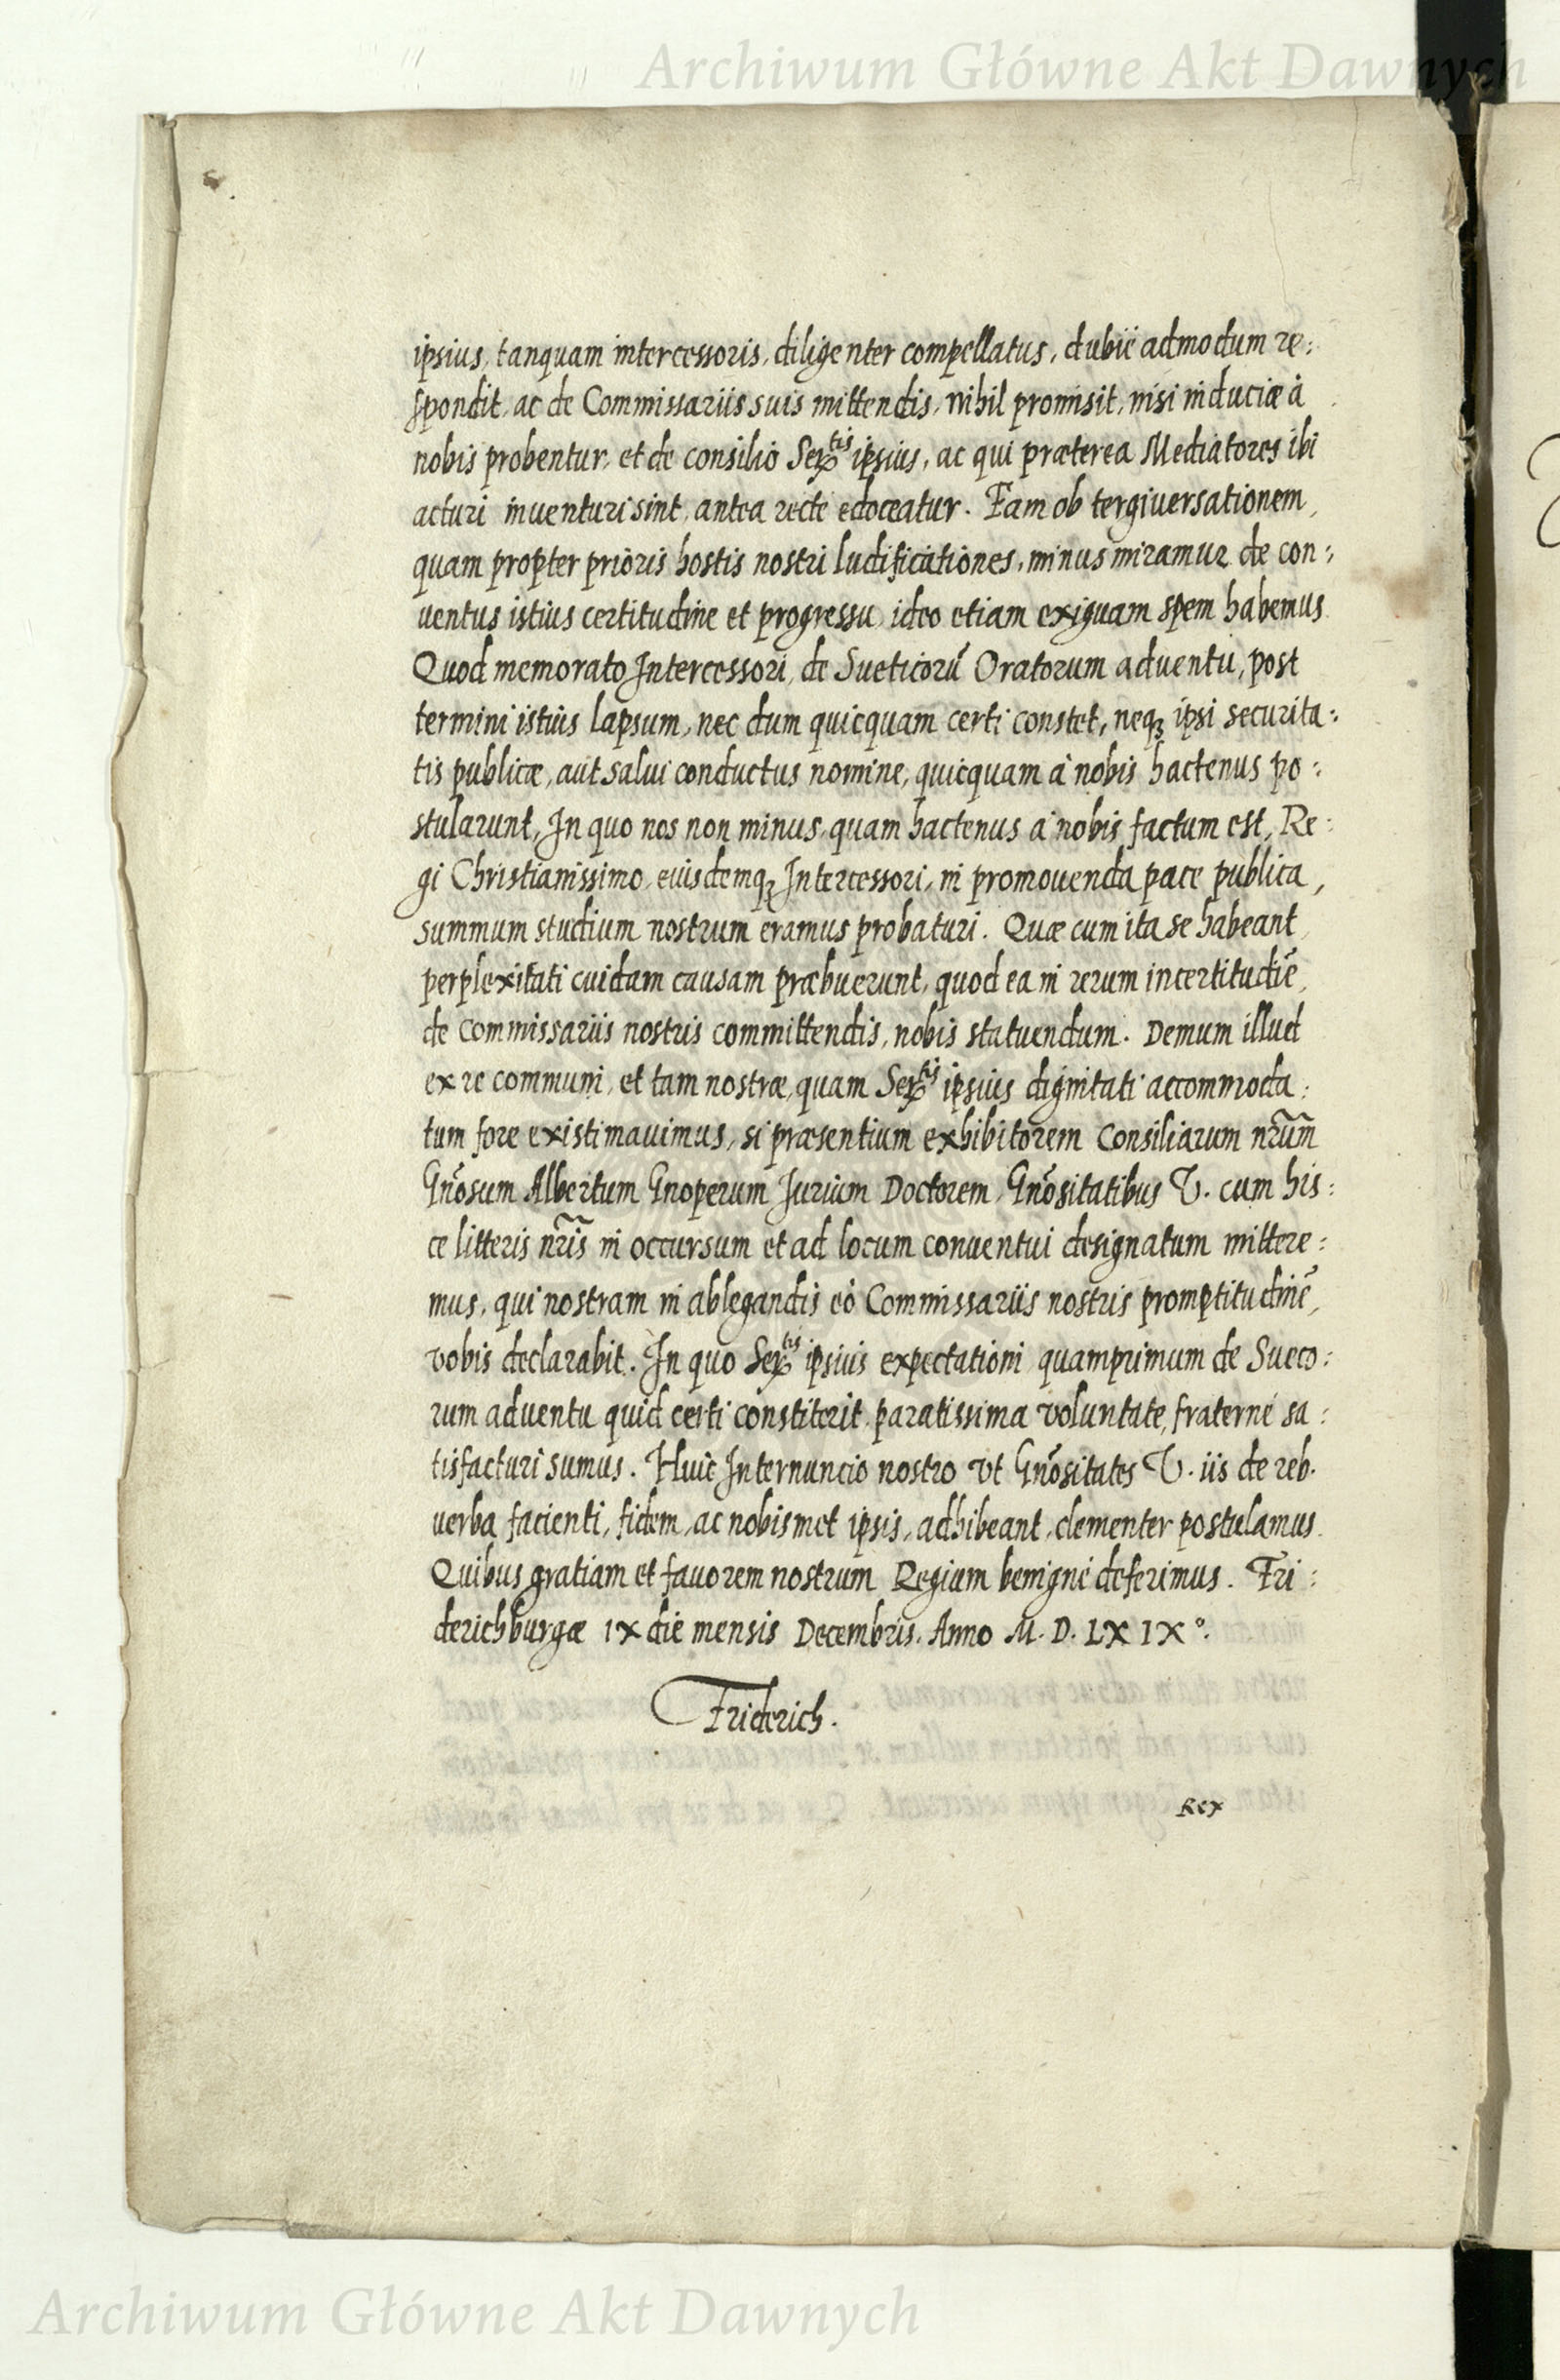 Archiwum Główne Akt Dawnych
ipsius, tanquam intercessoris, diligenter compellatus, dubiè admodum re:
spondit, ac de Commissariis suis mittendis, nihil promisit, nisi induciæ à
nobis probentur, et de consilio Ser<sup>tis</sup> ipsius, ac qui præterea Mediatores ibi
acturi inventuri sint, antea rectè edoceatur. Eam ob tergiversationem,
quam propter prioris hostis nostri ludificationes, minus miramur de con:
ventus istius certitudine et progressu, ideo etiam exiguam spem habemus
Quod memorato Intercessori, de Sueticorū Oratorum adventu, post
termini istius lapsum, nec dum quicquam certi constet, neqꝫ ipsi securita:
tis publicæ, aut salvi conductus nomine, quicquam à nobis hactenus po:
stularunt, In quo nos non minus, quam hactenus à nobis factum est, Re:
gi Christianissimo, eiusdemqꝫ Intercessori, in promovenda pace publica,
summum studium nostrum eramus probaturi. Quæ cum ita se habeant,
perplexitati cuidam causam præbuerunt, quod ea in rerum incertitudiē,
de Commissariis nostris committendis, nobis statuendum. Demum illud
ex re communi, et tam nostræ, quam Ser<sup>tis</sup> ipsius dignitati accommoda:
tum fore existimavimus, si præsentium exhibitorem Consiliarum nr̃um
Gnõsum Albertum Gnoperum Jurium Doctorem, Gnõsitatibus V. cum his:
ce litteris nr̃is in occursum et ad locum conventui designatum mittere:
mus, qui nostram in ablegandis eò Commissariis nostris promptitudinē,
vobis declarabit. In quo Ser<sup>tis</sup> ipsius expectationi quamprimum de Sueco:
rum adventu quid certi constiterit, paratissima voluntate, fraternè sa:
tisfacturi sumus. Huic Internuncio nostro vt Gnõsitates V. iis de reb.
verba facienti, fidem, ac nobismet ipsis, adhibeant, clementer postulamus
Quibus gratiam et favorem nostrum Regium benignè deferimus. Fri:
derichburgæ IX die mensis Decembris. Anno M. D. LXIX°.
Friderich.
Rex
Archiwum Główne Akt Dawnych